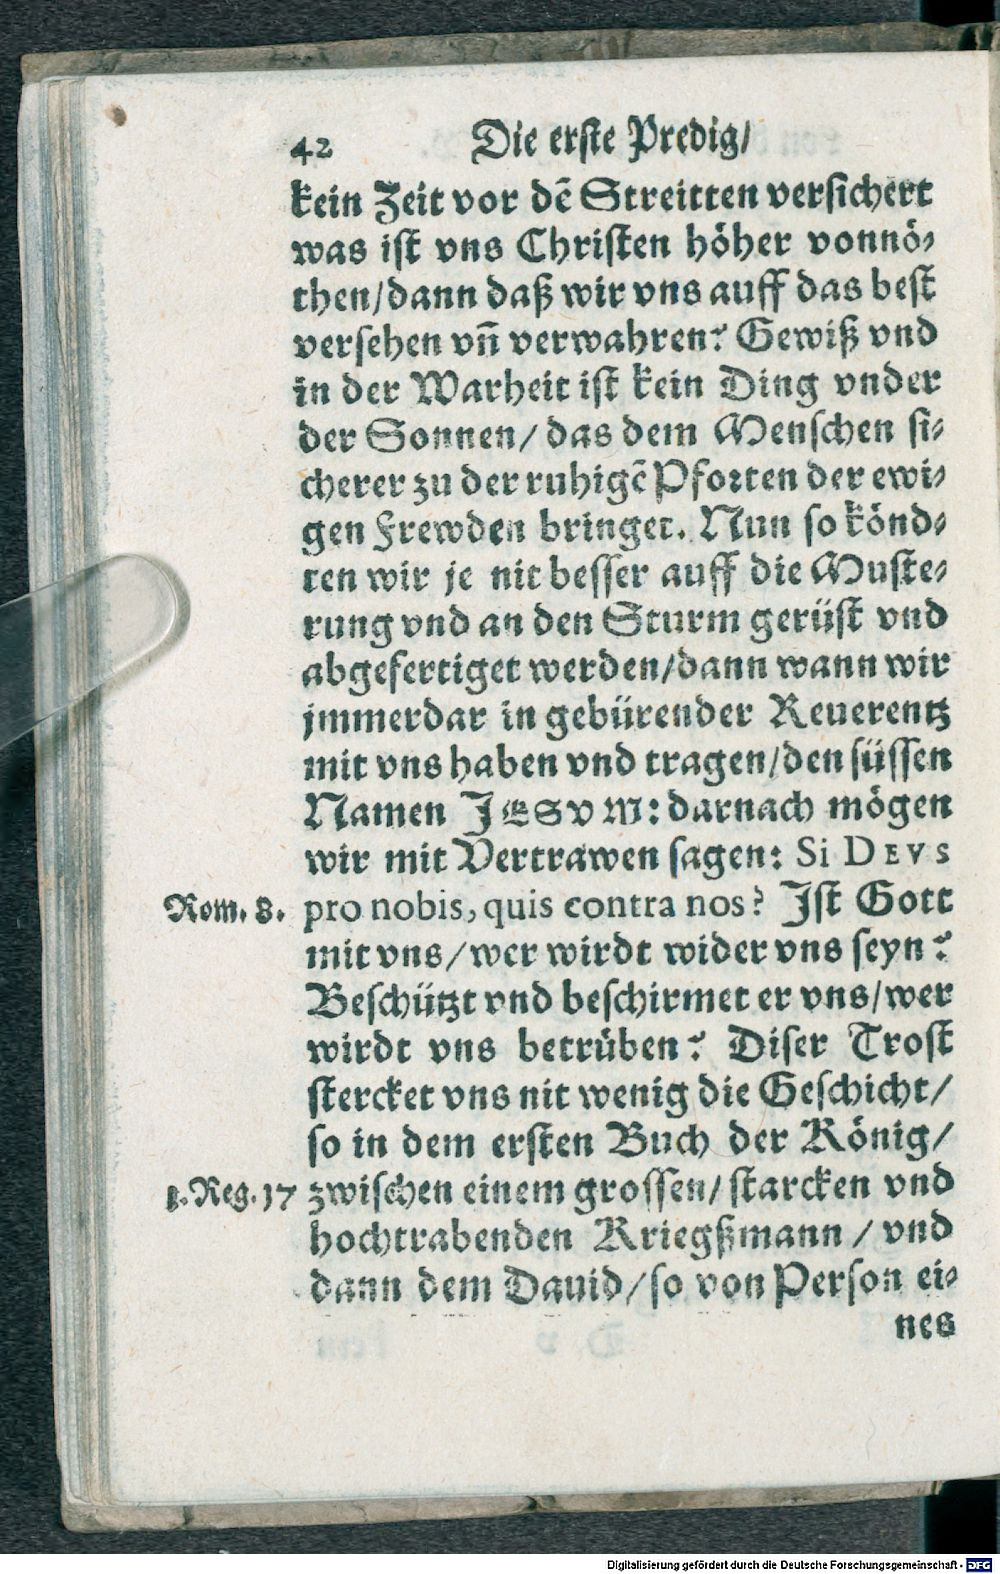 42 Die erste Predig/
kein Zeit vor dē Streitten versichert
was ist vns Christen höher vonnö⸗
then/dann daß wir vns auff das best
versehen vn̄ verwahren? Gewiß vnd
in der Warheit ist kein Ding vnder
der Sonnen/ das dem Menschen si⸗
cherer zu der ruhigē Pforten der ewi⸗
gen Frewden bringet. Nun so könd⸗
ten wir je nit besser auff die Muste⸗
rung vnd an den Sturm gerüst vnd
abgefertiget werden/dann wann wir
jmmerdar in gebürender Reuerentz
mit vns haben vnd tragen/den süssen
Namen JESVM: darnach mögen
wir mit Vertrawen sagen: Si DEVS
Rom. 8. pro nobis, quis contra nos? Ist Gott
mit vns/wer wirdt wider vns seyn?
Beschützt vnd beschirmet er vns/wer
wirdt vns betrüben? Diser Trost
stercket vns nit wenig die Geschicht/
so in dem ersten Buch der König/
1. Reg. 17 zwischen einem grossen/starcken vnd
hochtrabenden Kriegßmann / vnd
dann dem Dauid/so von Person ei⸗
nes
Digitalisierung gefördert durch die Deutsche Forschungsgemeinschaft - DFG